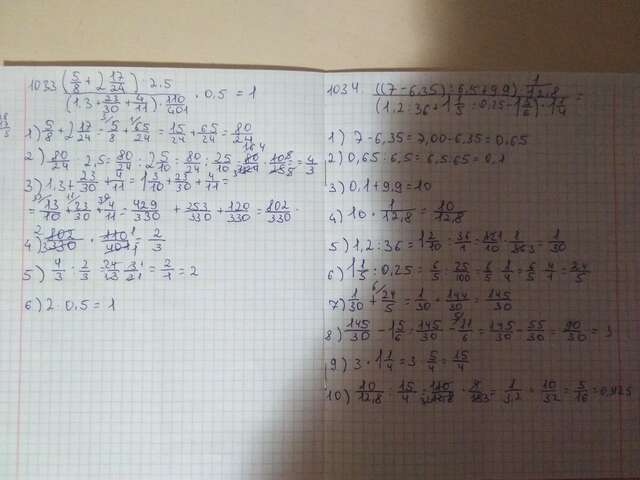 1033 (5/8 + 2 17/24) : 2.5
(1.3 + 23/30 + 4/11) · 110/401 · 0,5 = 1
1) 5/8 + 2 17/24 = 5/8 + 65/24 = 15/24 + 65/24 = 80/24
2) 80/24 : 2,5 = 80/24 : 25/10 = 80/24 : 25/10 = 4/3
3) 1,3 + 23/30 + 4/11 = 1 3/10 + 23/30 + 4/11 =
= 13/10 + 23/30 + 4/11 = 429/330 + 253/330 + 120/330 = 802/330
4) 802/330 · 110/401 = 2/3
5) 4/3 : 2/3 = 2/1 = 2
6) 2 · 0,5 = 1
1034. ((7 - 6,35) : 6,5 + 9,9) · 1/12,8
(1,2 : 36 + 1 1/5 : 0,25 - 1 5/6) · 1 1/4 =
1) 7 - 6,35 = 7,00 - 6,35 = 0,65
2) 0,65 : 6,5 = 6,5 : 65 = 0,1
3) 0,1 + 9,9 = 10
4) 10 · 1/12,8 = 10/12,8
5) 1,2 : 36 = 1 2/10 : 36/1 = 1/30
6) 1 1/5 : 0,25 = 6/5 : 25/100 = 6/5 : 1/4 = 6/5 · 4/1 = 24/5
7) 1/30 + 24/5 = 1/30 + 144/30 = 145/30
8) 145/30 - 1 5/6 = 145/30 - 11/6 = 145/30 - 55/30 = 90/30 = 3
9) 3 · 1 1/4 = 3 · 5/4 = 15/4
10) 10/12,8 : 15/4 = 1/3,2 = 10/32 = 5/16